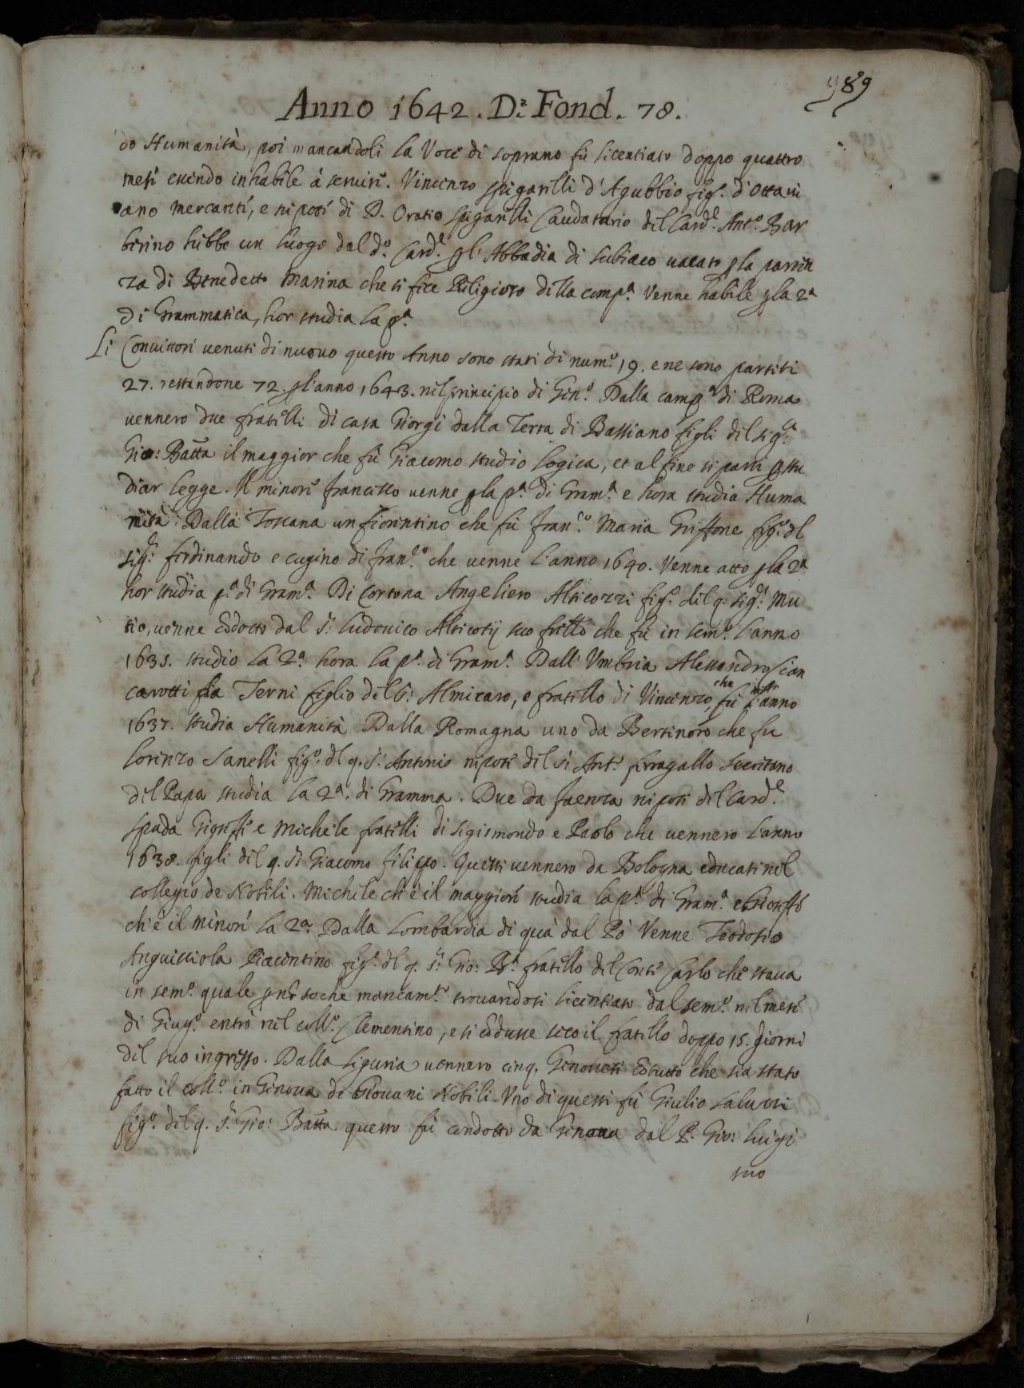 989
Anno 1642. D.ª Fond. 78.
do Humanità, poi mancandoli la Voce di soprano fù licentiato doppo quattro
mesi essendo inhabile à seruire. Vincenzo Spigarelli d'Agubbio fig.º d'Ottaui
ano mercante, e nipote di D. Oratio Spigarelli Caudatario del Card.l Ant.º Bar
berino hebbe un luogo del d.º Card.l pl' Abbadia di Subiaco uacato p la parten
za di Benedetto Marina che si fece Religioso della comp.ª Venne habile p la 2ª
di Grammatica, hor studia la pª.
Li Conuittori uenuti di nuouo questo Anno sono stati di num.º 19. e ne sono partiti
27. restandone 72. pl'anno 1643. nel principio di Gen.º Dalla camp.ª di Roma
uennero due fratelli di casa Giorgi dalla Terra di Bassiano figli del sig.r
Gio: Batta il maggior che fù Giacomo studio logica, et al fine si parti p stu
diar legge. Il minore francesco uenne p la pª. di Gram.ª e hora studia Huma
nità. Dalla Toscana un fiorentino che fù Fran.co Maria Griffone fig.º del
sig.r ferdinando e cugino di fran.co che uenne l'anno 1640. Venne atto p la 2ª
hor studia pª. di Gram.ª Di Cortona Angeliero Alticozzi fig.º del q. sig.r Mu
tio, uenne codotto dal S.r Ludouico Alticozij suo frello che fù in sem.º l'anno
1635. studio la 2ª. hora la pª. di Gram.ª Dall' Vmbria Alessandro Sian
carotti da Terni figlio del S.r Almicaro, e fratello di Vincenzo che fù l'anno
1637. studia Humanità. Dalla Romagna uno da Bertinoro che fu
Lorenzo Sanelli fig.º del q. S.r Antonio nipote del S.r Ant.º Feragallo Secretario
del Papa studia la 2ª. di Gramma. Due da faenza nipoti del Card.l
Spada Gioseffe e Michele fratelli di Sigismondo e Paolo che uennero l'anno
1638. figli del q. S.r Giacomo filippo. Questi uennero da Bologna educati nel
collegio de Nobili. Michele ch'è il maggiore studia la pª. di Gram.ª e Gioseffe
ch'è il minore la 2ª. Dalla Lombardia di quà dal Pò Venne Teodosio
Anguissiola Piacentino fig.º del q. S.r Gio: Bª. fratello del Conte Carlo che staua
in sem.º quale p nō so che mancam.to trouandosi licentiato dal sem.º nel mese
di Giug.º entrò nel coll.º Clementino, e si cōdusse seco il fratello doppo 15. giorni
del suo ingresso. Dalla Liguria uennero cinq. Genouesi cō tutto che sia stato
fatto il coll.º in Genoua de Giouani Nobili. Vno di questi fù Giulio Saluzzi
fig.º del q. S.r Gio: Batta questo fù condotto da Genoua dal P. Gio: Luigi
suo